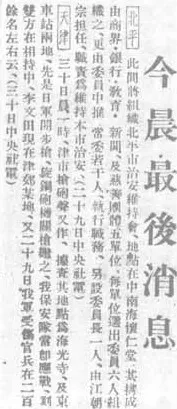 今晨最後消息
【北平】此間將組織北平市治安維持會、地點在中南海懷仁堂、其構成
由商界、銀行、教育、新聞、及慈善團體五單位、每單位選出委員六人組
織之、更由委員中推常委若干人、執行職務、另設委員長一人、由江朝
宗担任、職責為維持本市治安、（二十九日中央社電）
【天津】三十日晨一時、津市槍砲聲又作、據查其地點為海光寺、及東
車站兩地、先是日軍開步槍、旋鋼砲機關槍繼之、我保安隊當即應戰、刻
雙方在相持中、李文田現在津郊某地、又二十九日我軍受傷官兵在二百
餘名左右云、（三十日中央社電）